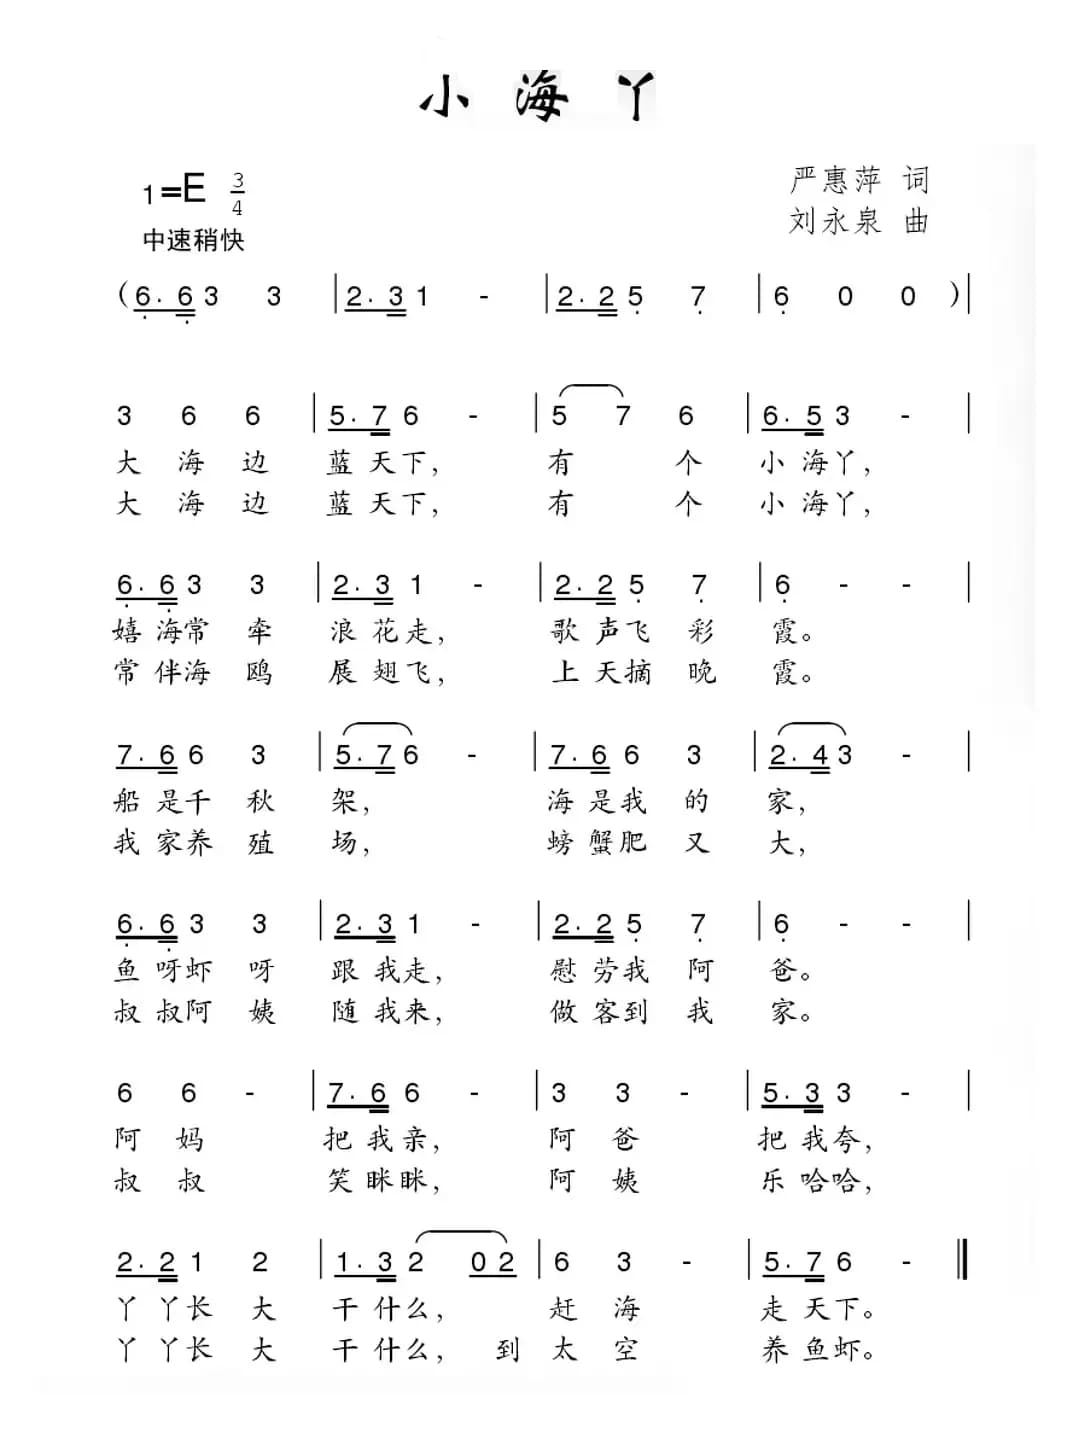 小海丫
1=E 3/4
严惠萍 词
刘永泉 曲
中速稍快
(6. 6 3 3 | 2. 3 1 - | 2. 2 5 7 | 6 0 0 )|
3 6 6 | 5. 7 6 - | 5 7 6 | 6. 5 3 - |
大海边 蓝天下, 有个 小海丫,
大海边 蓝天下, 有个 小海丫,
6. 6 3 3 | 2. 3 1 - | 2. 2 5 7 | 6 - - |
嬉海常牵 浪花走, 歌声飞彩 霞。
常伴海鸥 展翅飞, 上天摘晚 霞。
7. 6 6 3 | 5. 7 6 - | 7. 6 6 3 | 2. 4 3 - |
船是千秋 架, 海是我的 家,
我家养殖 场, 螃蟹肥又 大,
6. 6 3 3 | 2. 3 1 - | 2. 2 5 7 | 6 - - |
鱼呀虾呀 跟我走, 慰劳我阿 爸。
叔叔阿姨 随我来, 做客到我 家。
6 6 - | 7. 6 6 - | 3 3 - | 5. 3 3 - |
阿妈 把我亲, 阿爸 把我夸,
叔叔 笑眯眯, 阿姨 乐哈哈,
2. 2 1 2 | 1. 3 2 0 2 | 6 3 - | 5. 7 6 - ‖
丫丫长大 干什么, 赶海 走天下。
丫丫长大 干什么, 到太空 养鱼虾。